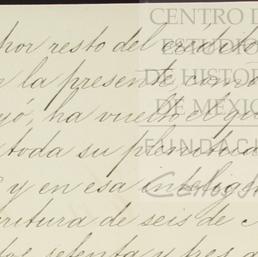 por resto del
la presente, con
yó, ha vuelto el
toda su plenitud
y en esa inteligen
ritura de seis de
setenta y tres
CENTRO D
ESTUDIO
DE HISTOR
DE MÉXIC
FUNDACI
Carlos